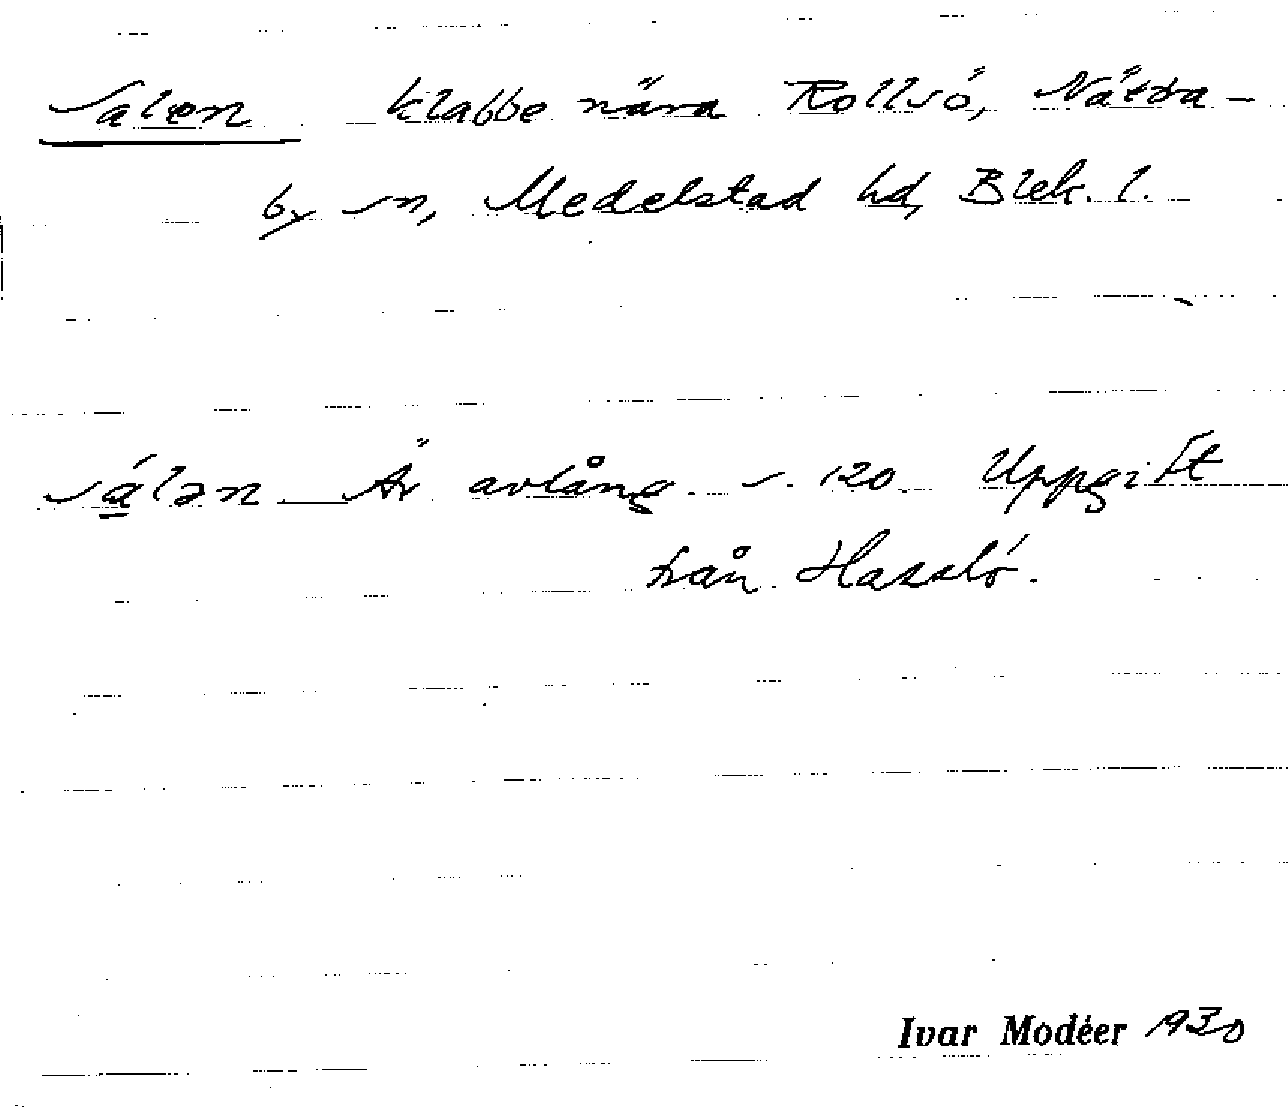 Salen klabbe nära Rollsö, Nättra-
by sn, Medelstad hd, Blek. l.
sálən Är avlång. s. 120. Uppgift
från Hasslö.
Ivar Modéer 1930